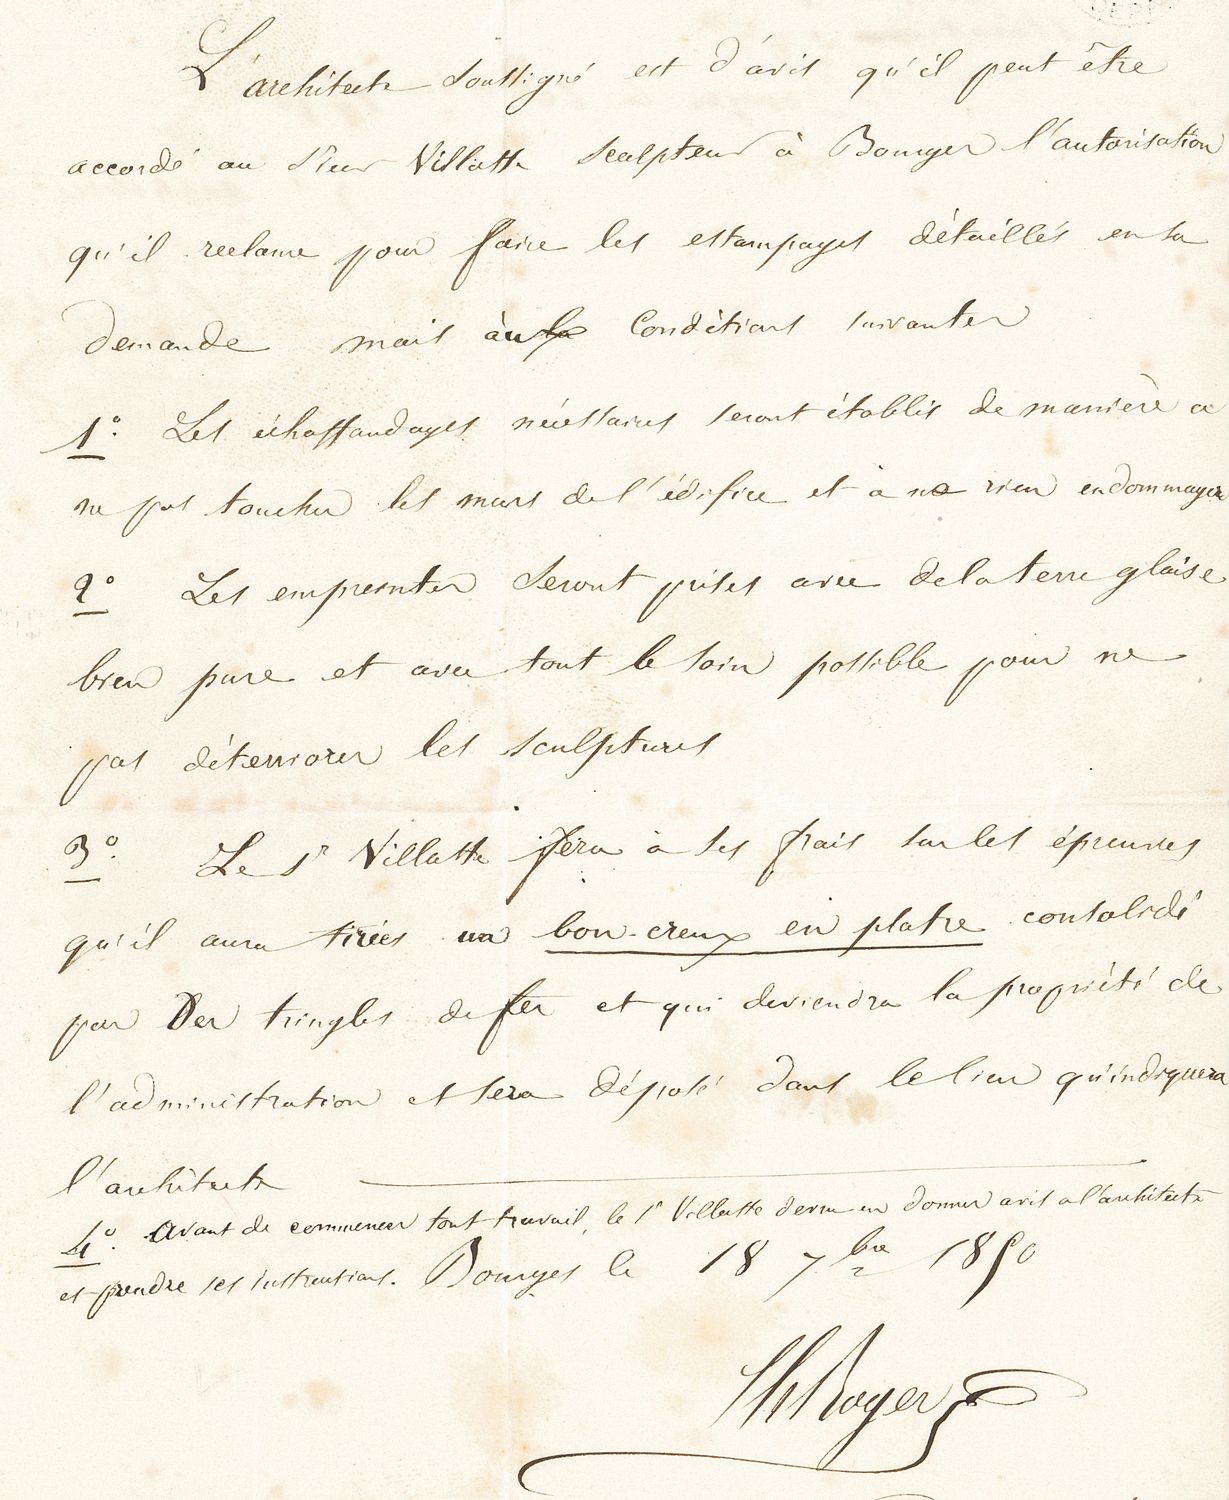 L'architecte soussigné est d'avis qu'il peut être
accordé au sieur Villatte sculpteur à Bourges l'autorisation
qu'il reclame pour faire les estampages détaillés en sa
demande mais aux conditions suivantes
1° Les échaffaudages nécessaires seront établis de manière a
ne pas toucher les murs de l'édifice et à ne rien endommager
2° Les empreintes seront prises avec de la terre glaise
bien pure et avec tout le soin possible pour ne
pas déteriorer les sculptures
3° Le Sr Villatte fera à ses frais sur les épreuves
qu'il aura tirées un bon creux en platre consolidé
par des tringles de fer et qui deviendra la propriété de
l'administration et sera déposé dans le lieu qu'indiquera
l'architecte
4° Avant de commencer tout travail, le Sr Villatte devra en donner avis a l'architecte
et prendre ses instructions. Bourges le 18 7bre 1850
Roger